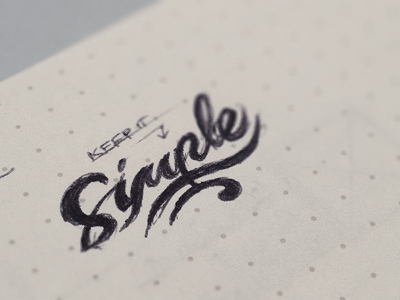 KEEP IT
Simple